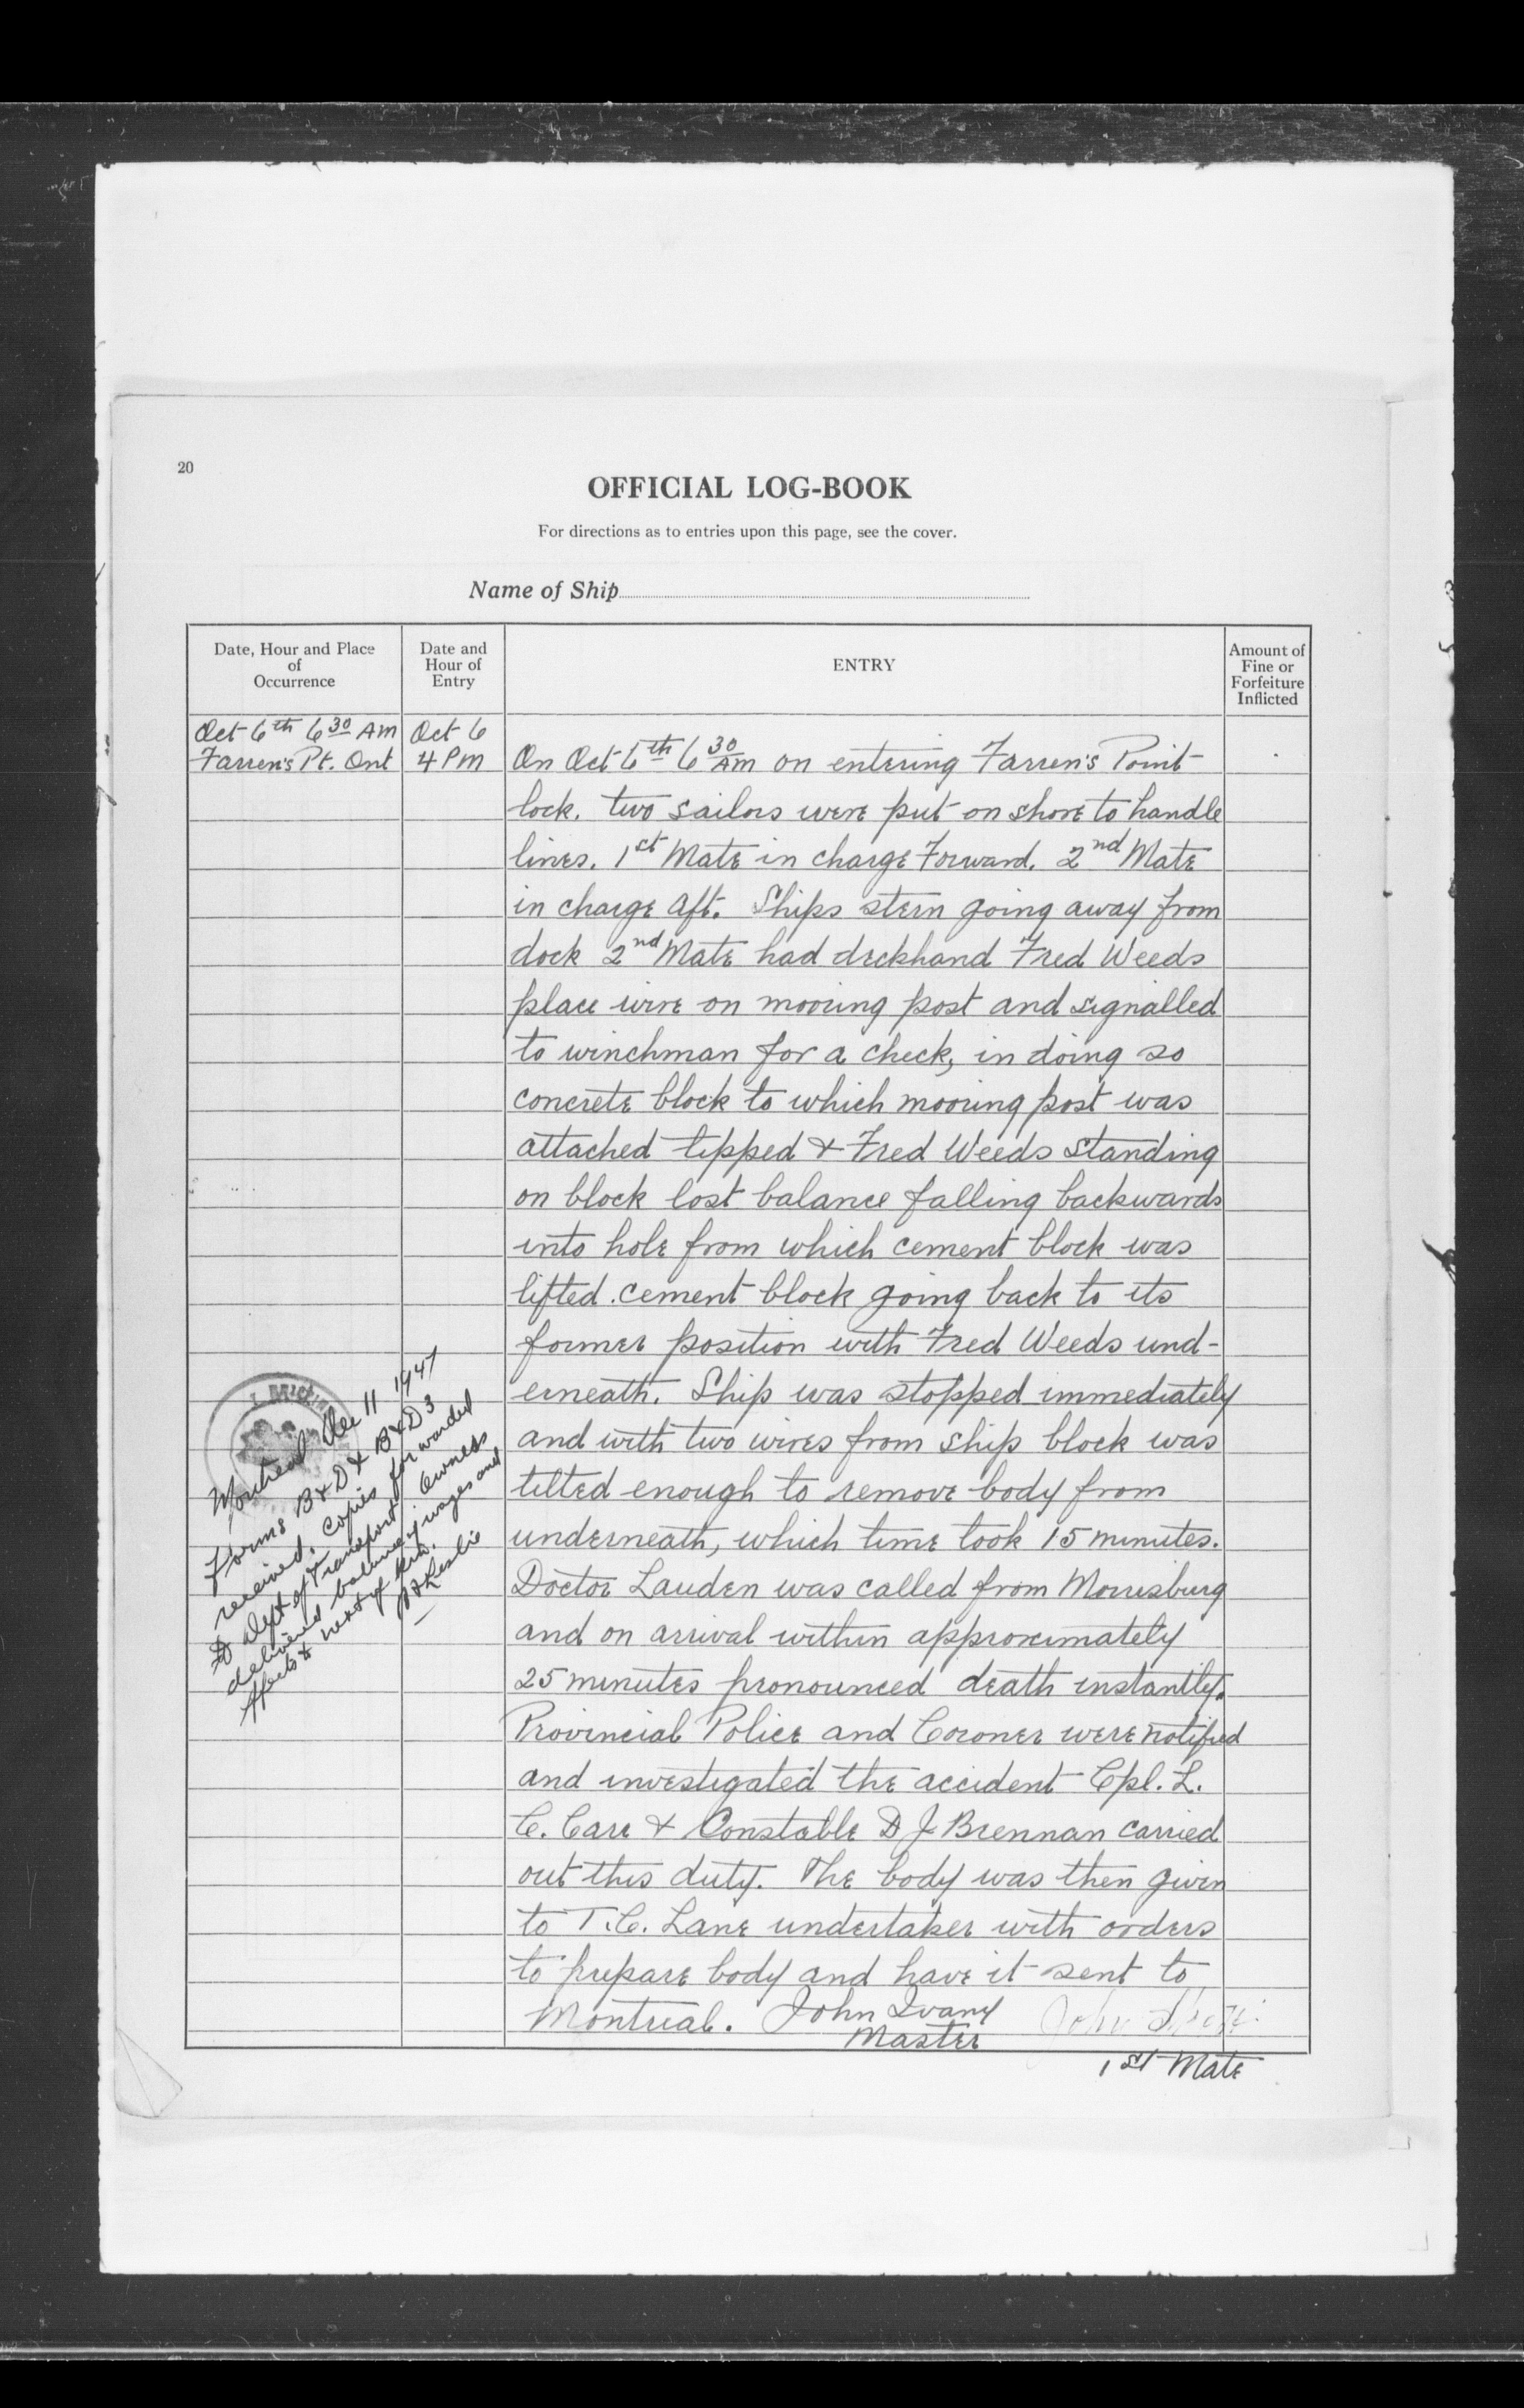 20
OFFICIAL LOG-BOOK
For directions as to entries upon this page, see the cover.
Name of Ship
Date, Hour and Place
of
Occurrence
Date and
Hour of
Entry
ENTRY
Amount of
Fine or
Forfeiture
Inflicted
Oct 6th 6 30 AM
Farren's Pt. Ont
Oct 6
4 PM
On Oct 6th 6 30 AM on entering Farren's Point
lock. two sailors were put on shore to handle
lines. 1st Mate in charge Forward. 2nd Mate
in charge aft. Ships stern going away from
dock 2nd Mate had deckhand Fred Weeds
place wire on mooring post and signalled
to winchman for a check, in doing so
concrete block to which mooring post was
attached tipped & Fred Weeds standing
on block lost balance falling backwards
into hole from which cement block was
lifted. cement block going back to its
former position with Fred Weeds und-
erneath. Ship was stopped immediately
and with two wires from ship block was
tilted enough to remove body from
underneath, which time took 15 minutes.
Doctor Lauden was called from Morrisburg
and on arrival within approximately
25 minutes pronounced death instantly.
Provincial Police and Coroner were notified
and investigated the accident Cpl. L.
C. Carr & Constable D J Brennan carried
out this duty. The body was then given
to T.C. Lane undertaker with orders
to prepare body and have it sent to
Montreal. John Ivany
Master
John
1st Mate
Montreal Dec 11 1947
Forms B&D & B&D 3
received. Copies forwarded
to Dept of Transport. Owners
delivered balance of wages and
effects to next of kin.
Leslie